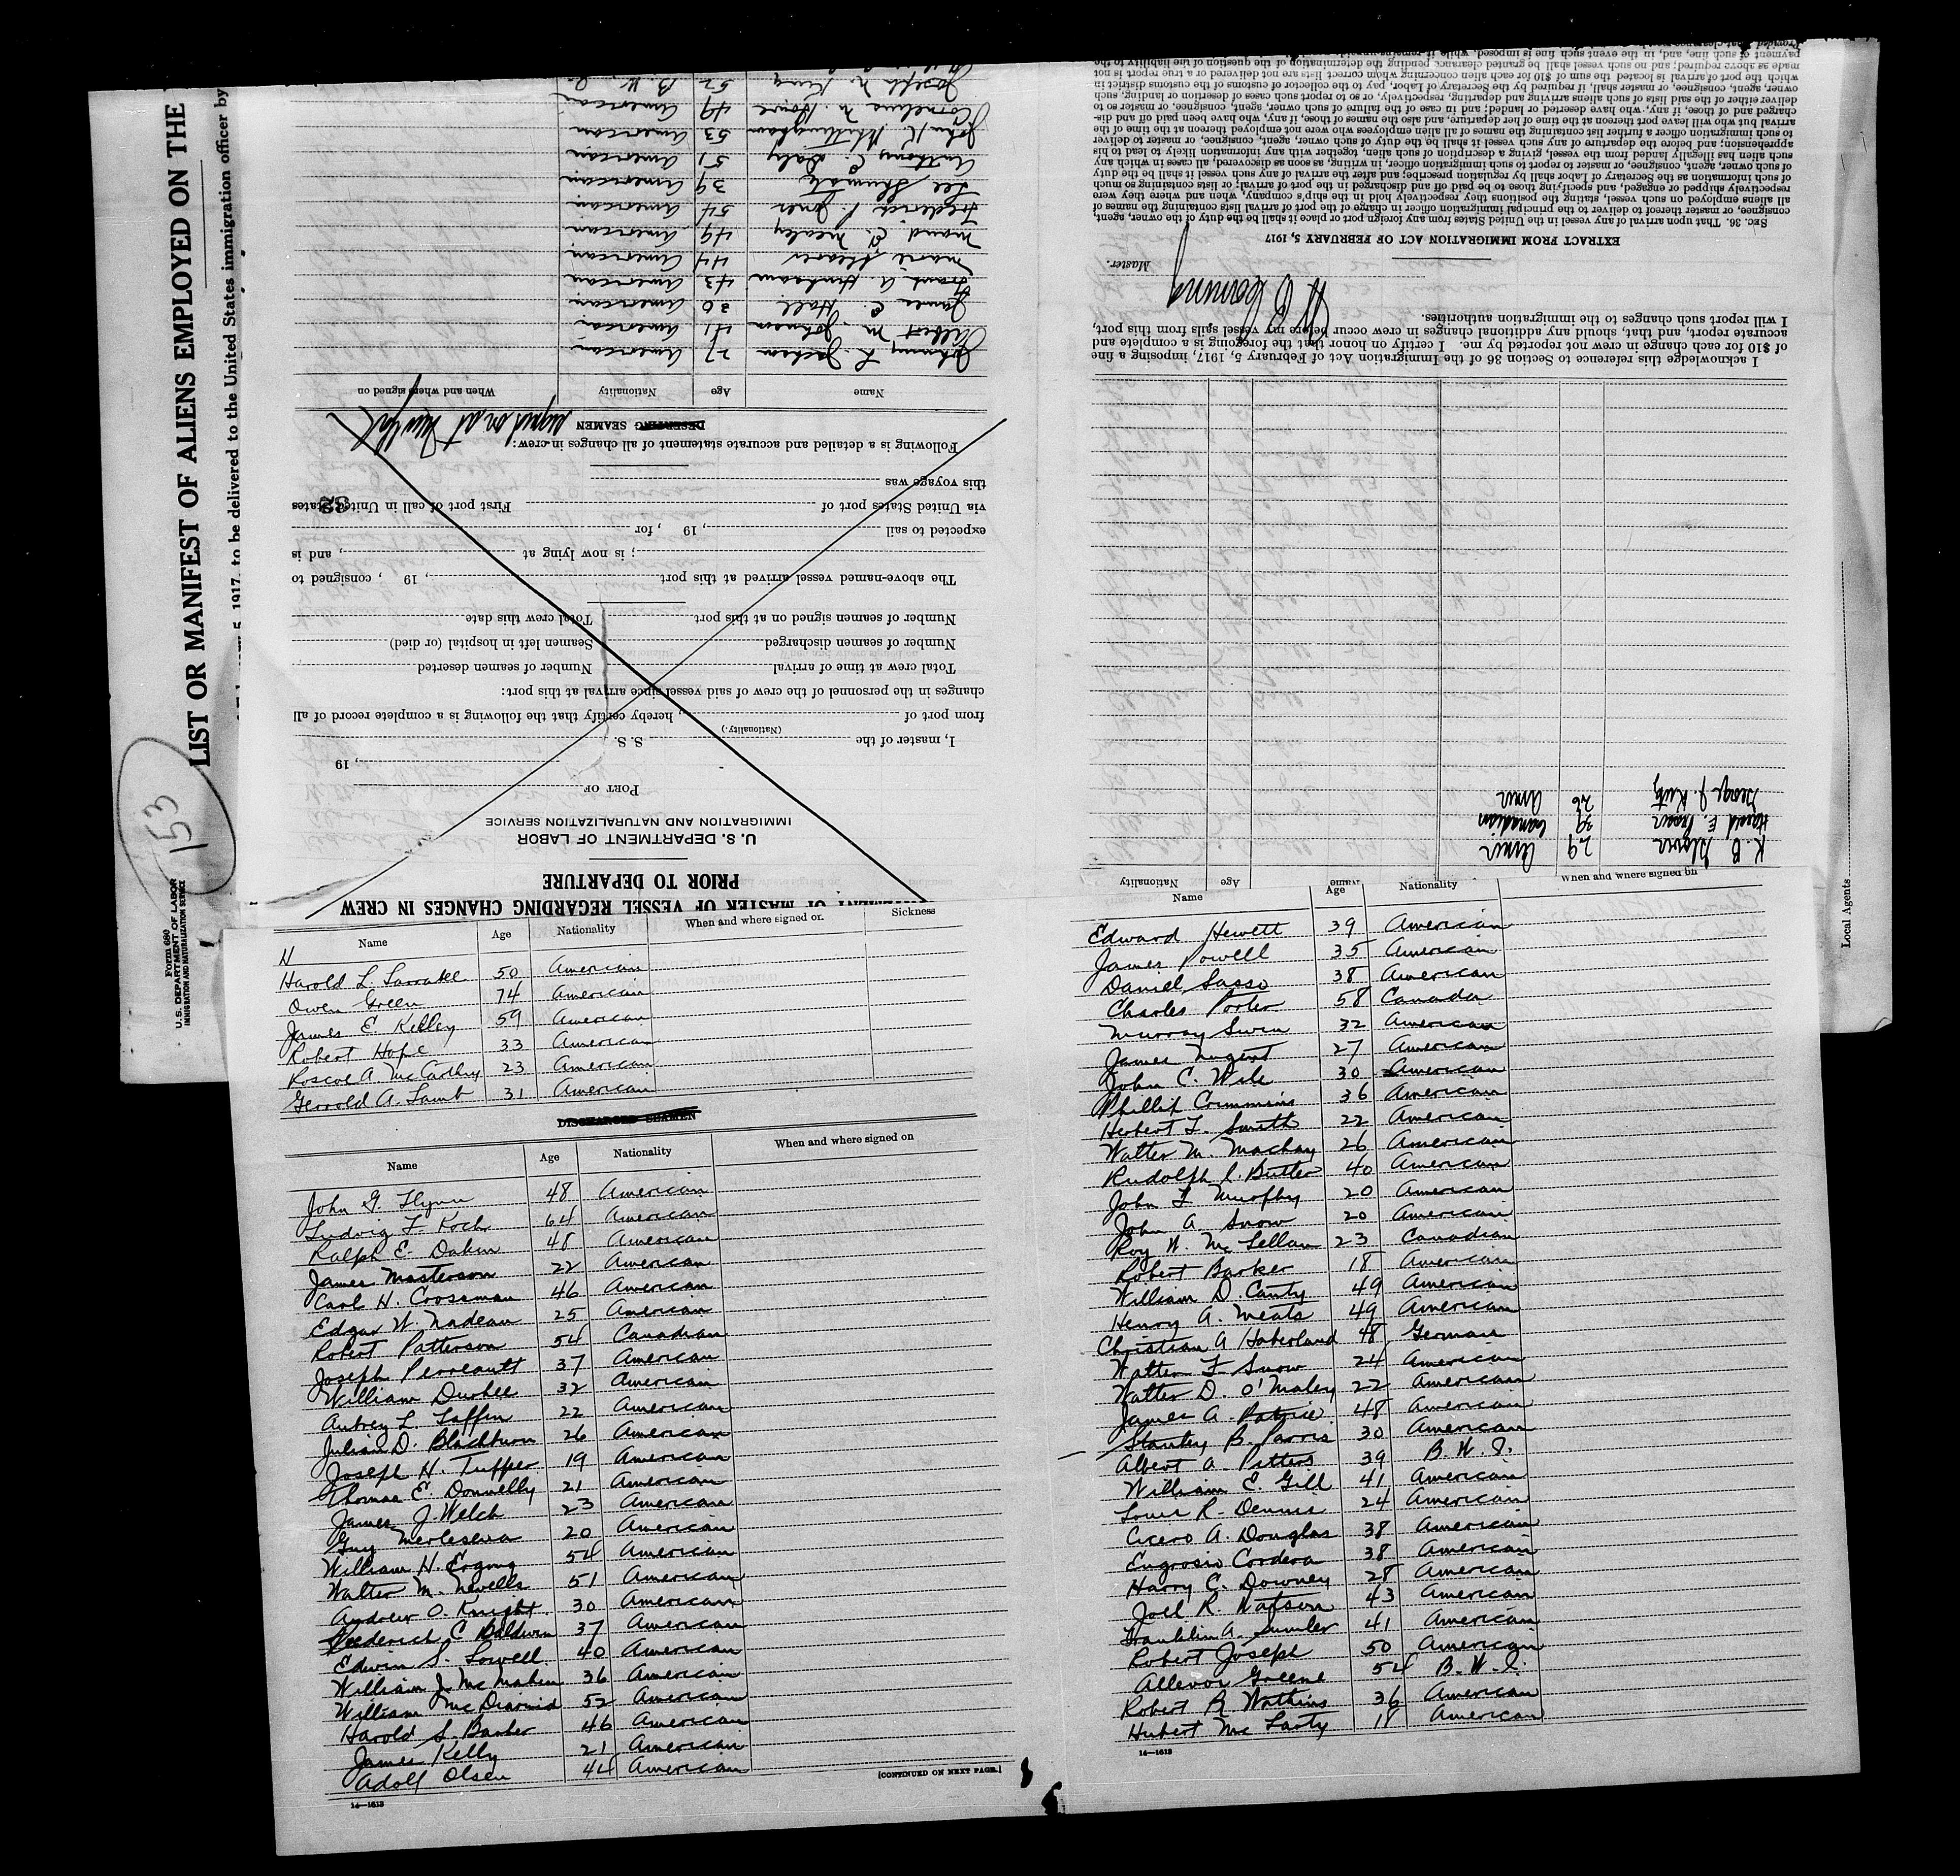 LIST OR MANIFEST OF ALIENS EMPLOYED ON THE
5, 1917, to be delivered to the United States immigration officer by
Form 680
U. S. DEPARTMENT OF LABOR
IMMIGRATION AND NATURALIZATION SERVICE
153
Local Agents
REGARDING CHANGES IN CREW
PRIOR TO DEPARTURE
U. S. DEPARTMENT OF LABOR
IMMIGRATION AND NATURALIZATION SERVICE
PORT OF
, 19
I, master of the S. S.
(Nationality.)
from port of , hereby certify that the following is a complete record of all
changes in the personnel of the crew of said vessel since arrival at this port:
Total crew at time of arrival Number of seamen deserted
Number of seamen discharged Seamen left in hospital (or died)
Number of seamen signed on at this port Total crew this date.
The above-named vessel arrived at this port , 19 , consigned to
; is now lying at , and is
expected to sail , 19 , for
via United States port of First port of call in United States
32
this voyage was
Following is a detailed and accurate statement of all changes in crew:
DESERTING SEAMEN signed on at New York
Name Age Nationality When and where signed on
Johnny L. Jackson 27 American
Albert M. Johnson 41 American
James C. Hall 30 American
Frank A. 43 American
Marie 44 American
Maud E. Nealey 49 American
Frederick P. Jones 54 American
Lee 39 American
Anthony C. Daly 51 American
John K. 53 American
Cornelius N. 49 American
Joseph N. King 52 B. W. I.
Name Age Nationality When and where signed on
K. B. 29 Amer
Harold E. 39 Canadian
George J. Kurtz 26 Amer
I acknowledge this reference to Section 36 of the Immigration Act of February 5, 1917, imposing a fine
of $10 for each change in crew not reported by me. I certify on honor that the foregoing is a complete and
accurate report, and that, should any additional changes in crew occur before my vessel sails from this port,
I will report such changes to the immigration authorities.
Master.
EXTRACT FROM IMMIGRATION ACT OF FEBRUARY 5, 1917
SEC. 36. That upon arrival of any vessel in the United States from any foreign port or place it shall be the duty of the owner, agent,
consignee, or master thereof to deliver to the principal immigration officer in charge of the port of arrival lists containing the names of
all aliens employed on such vessel, stating the positions they respectively hold in the ship's company, when and where they were
respectively shipped or engaged, and specifying those to be paid off and discharged in the port of arrival; or lists containing so much
of such information as the Secretary of Labor shall by regulation prescribe; and after the arrival of any such vessel it shall be the duty
of such owner, agent, consignee, or master to report to such immigration officer, in writing, as soon as discovered, all cases in which any
such alien has illegally landed from the vessel, giving a description of such alien, together with any information likely to lead to his
apprehension; and before the departure of any such vessel it shall be the duty of such owner, agent, consignee, or master to deliver
to such immigration officer a further list containing the names of all alien employees who were not employed thereon at the time of the
arrival but who will leave port thereon at the time of her departure, and also the names of those, if any, who have been paid off and dis-
charged and of those, if any, who have deserted or landed; and in case of the failure of such owner, agent, consignee, or master so to
deliver either of the said lists of such aliens arriving and departing, respectively, or so to report such cases of desertion or landing, such
owner, agent, consignee, or master shall, if required by the Secretary of Labor, pay to the collector of customs of the customs district in
which the port of arrival is located the sum of $10 for each alien concerning whom correct lists are not delivered or a true report is not
made as above required; and no such vessel shall be granted clearance pending the determination of the question of the liability to the
payment of such fine, and, in the event such fine is imposed, while it
Name Age Nationality When and where signed or. Sickness
H
Harold L. 50 American
Owen Green 74 American
James E. Kelley 59 American
Robert Hope 33 American
Roscoe A McCarthy 23 American
Gerrold A. Lamb 31 American
DISCHARGED SEAMEN
Name Age Nationality When and where signed on
John G. Flynn 48 American
Ludvig F. Koch 64 American
Ralph E. Dakin 48 American
James Masterson 22 American
Carl H. Crossman 46 American
Edgar W. Nadeau 25 American
Robert Patterson 54 Canadian
Joseph Perreault 37 American
William Durkee 32 American
Aubrey L. Laffin 22 American
Julian D. Blackburn 26 American
Joseph H. Tupper 19 American
Thomas E. Donnelly 21 American
James J. Welch 23 American
Guy 20 American
William H. 54 American
Walter M. Newells 51 American
Andrew O. Knight 30 American
Frederick C Baldwin 37 American
Edwin S. Lowell 40 American
William J. McMahon 36 American
William McDiarmid 52 American
Harold S. Barker 46 American
James Kelly 21 American
Adolf Olsen 44 American
[CONTINUED ON NEXT PAGE.]
14—1613
Name Age Nationality When and where signed on
Edward Hewett 39 American
James Powell 35 American
Daniel Sasso 38 American
Charles Porter 58 Canada
Murray Swin 32 American
James Nugent 27 American
John C. Wile 30 American
Phillip Crimmins 36 American
Herbert F. Smith 22 American
Walter M. Mackay 26 American
Rudolph C. Butler 40 American
John F Murphy 20 American
John A. Snow 20 American
Roy W. McLellan 23 Canadian
Robert Barker 18 American
William D. Canty 49 American
Henry A. Meats 49 American
Christian A Haberland 48 German
Walter F Snow 24 American
Walter D. O'Maley 22 American
James A. Patrie 48 American
Stanley B. Parris 30 American
Albert A. Pitters 39 B. W. I.
William E. Gill 41 American
Louis R. Dennis 24 American
Cicero A. Douglas 38 American
Cordova 38 American
Harry C. Downey 28 American
Joel R. Watson 43 American
Franklin A. Sumler 41 American
Robert Joseph 50 American
Greene 54 B. W. I.
Robert R Watkins 36 American
Hubert McLarty 18 American
14—1613